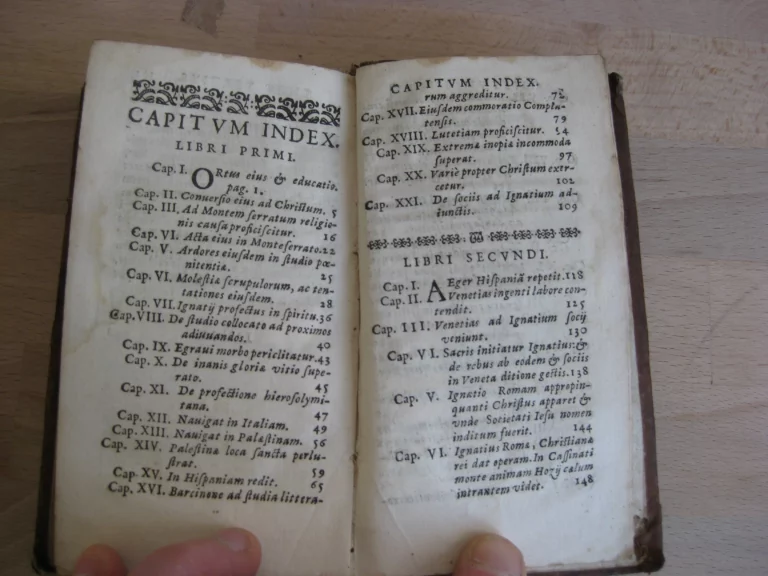 CAPITVM INDEX.
LIBRI PRIMI.
Cap. I. ORtus eius & educatio.
pag. 1.
Cap. II. Conuersio eius ad Christum. 5
Cap. III. Ad Montem serratum religio-
nis causa proficiscitur. 16
Cap. VI. Acta eius in Monteserrato. 22
Cap. V. Ardores eiusdem in studio pœ-
nitentiæ. 25
Cap. VI. Molestia scrupulorum, ac ten-
tationes eiusdem. 28
Cap. VII. Ignatij profectus in spiritu. 36
Cap. VIII. De studio collocato ad proximos
adiuuandos. 40
Cap. IX. Egraui morbo periclitatur. 43
Cap. X. De inanis gloriæ vitio supe-
rato. 45
Cap. XI. De profectione hierosolymi-
tana. 47
Cap. XII. Nauigat in Italiam. 49
Cap. XIII. Nauigat in Palæstinam. 56
Cap. XIV. Palestinæ loca sancta perlu-
strat. 59
Cap. XV. In Hispaniam redit. 65
Cap. XVI. Barcinone ad studia littera-
CAPITVM INDEX.
rum aggreditur.
Cap. XVII. Eiusdem commoratio Complu-
tensis. 79
Cap. XVIII. Lutetiam proficiscitur.
Cap. XIX. Extrema inopiæ incommoda
superat. 97
Cap. XX. Variè propter Christum exer-
cetur. 102
Cap. XXI. De socijs ad Ignatium ad-
iunctis. 109
LIBRI SECVNDI.
Cap. I. AEger Hispaniã repetit. 118
Cap. II. Venetias ingenti labore con-
tendit. 125
Cap. III. Venetias ad Ignatium socij
veniunt. 130
Cap. VI. Sacris initiatur Ignatius: &
de rebus ab eodem & socijs
in Veneta ditione gestis. 138
Cap. V. Ignatio Romam appropin-
quanti Christus apparet &
vnde Societati Iesu nomen
inditum fuerit. 144
Cap. VI. Ignatius Romæ, Christianæ
rei dat operam. In Cassinati
monte animam Hozij cælum
intrantem videt. 148